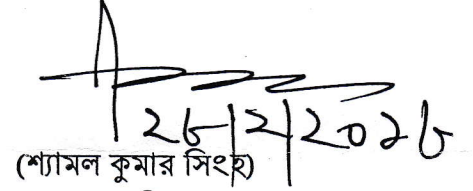 ২৮|২|২০১৮
(শ্যামল কুমার সিংহ)